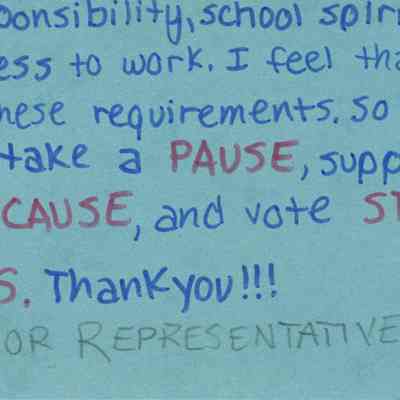 ponsibility, school spiri
ess to work. I feel tha
hese requirements. So
take a PAUSE, supp
CAUSE, and vote ST
S. Thankyou!!!
OR REPRESENTATIVE